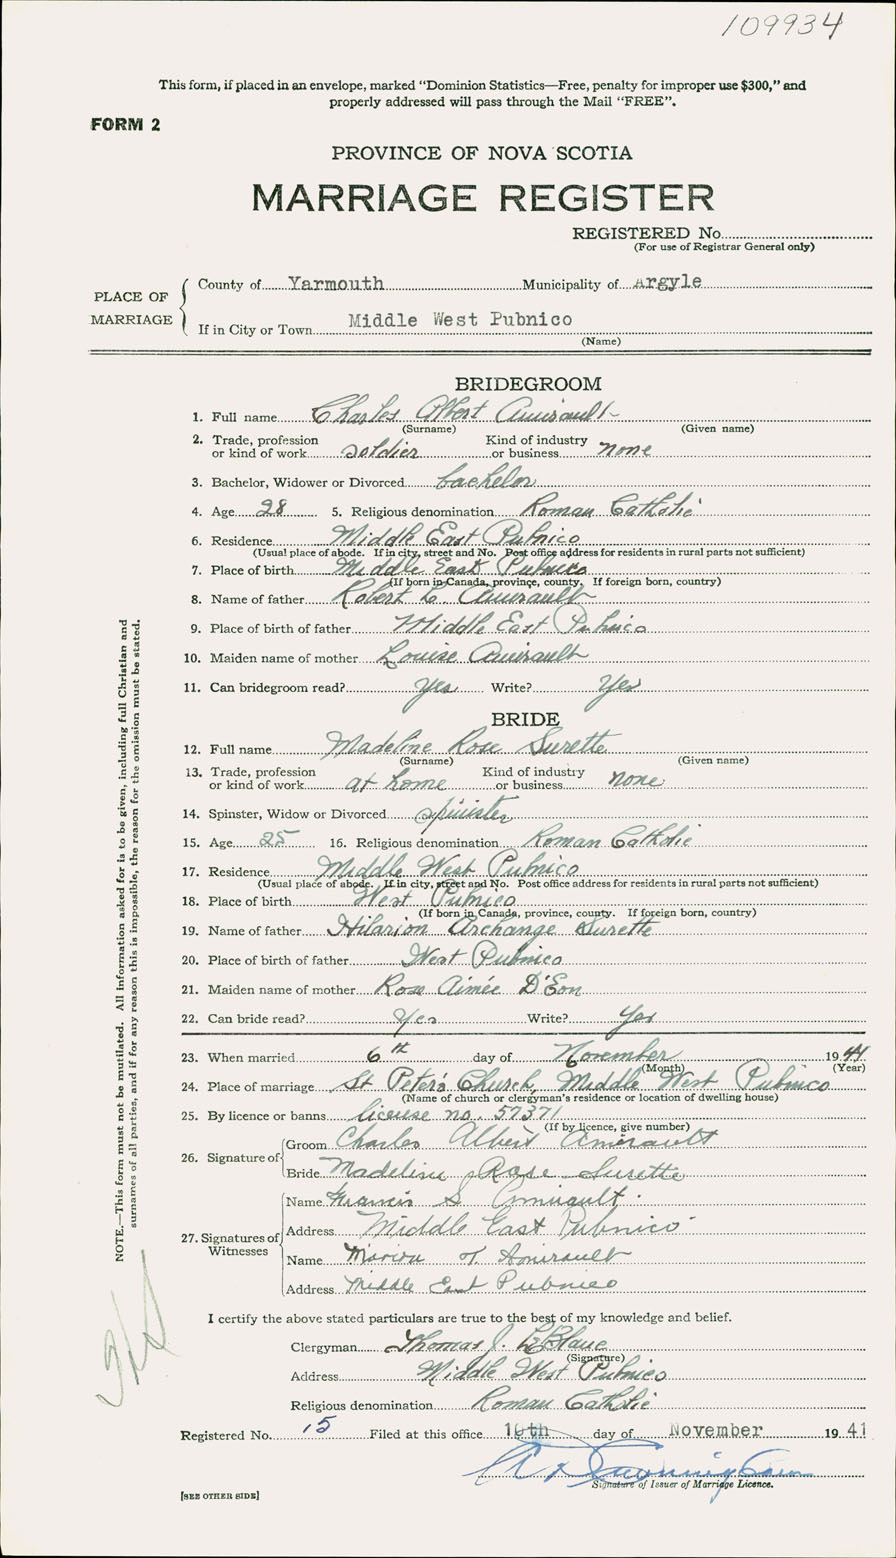 109934
This form, if placed in an envelope, marked "Dominion Statistics—Free, penalty for improper use $300," and
properly addressed will pass through the Mail "FREE".
FORM 2
PROVINCE OF NOVA SCOTIA
MARRIAGE REGISTER
REGISTERED No.
(For use of Registrar General only)
PLACE OF MARRIAGE
County of Yarmouth Municipality of Argyle
If in City or Town Middle West Pubnico
(Name)
BRIDEGROOM
1. Full name Charles Albert Amirault
(Surname) (Given name)
2. Trade, profession or kind of work soldier Kind of industry or business none
3. Bachelor, Widower or Divorced bachelor
4. Age 28 5. Religious denomination Roman Catholic
6. Residence Middle East Pubnico
(Usual place of abode. If in city, street and No. Post office address for residents in rural parts not sufficient)
7. Place of birth Middle East Pubnico
(If born in Canada, province, county. If foreign born, country)
8. Name of father Robert L. Amirault
9. Place of birth of father Middle East Pubnico
10. Maiden name of mother Louise Amirault
11. Can bridegroom read? Yes Write? Yes
BRIDE
12. Full name Madeline Rose Surette
(Surname) (Given name)
13. Trade, profession or kind of work at home Kind of industry or business none
14. Spinster, Widow or Divorced spinster
15. Age 25 16. Religious denomination Roman Catholic
17. Residence Middle West Pubnico
(Usual place of abode. If in city, street and No. Post office address for residents in rural parts not sufficient)
18. Place of birth West Pubnico
(If born in Canada, province, county. If foreign born, country)
19. Name of father Hilarion Archange Surette
20. Place of birth of father West Pubnico
21. Maiden name of mother Rose Aimée D'Eon
22. Can bride read? Yes Write? Yes
23. When married 6th day of November 19
(Month) (Year)
24. Place of marriage St Peter's Church, Middle West Pubnico
(Name of church or clergyman's residence or location of dwelling house)
25. By licence or banns license no. 57371
(If by licence, give number)
26. Signature of
Groom Charles Albert Amirault
Bride Madeline Rose Surette
27. Signatures of Witnesses
Name Francis S. Amirault
Address Middle East Pubnico
Name Marion Amirault
Address Middle East Pubnico
I certify the above stated particulars are true to the best of my knowledge and belief.
Clergyman Thomas J. LeBlanc
(Signature)
Address Middle West Pubnico
Religious denomination Roman Catholic
Registered No. 15 Filed at this office 10th day of November 19 41
Signature of Issuer of Marriage Licence.
[SEE OTHER SIDE]
NOTE.—This form must not be mutilated. All information asked for is to be given, including full Christian and
surnames of all parties, and if for any reason this is impossible, the reason for the omission must be stated.